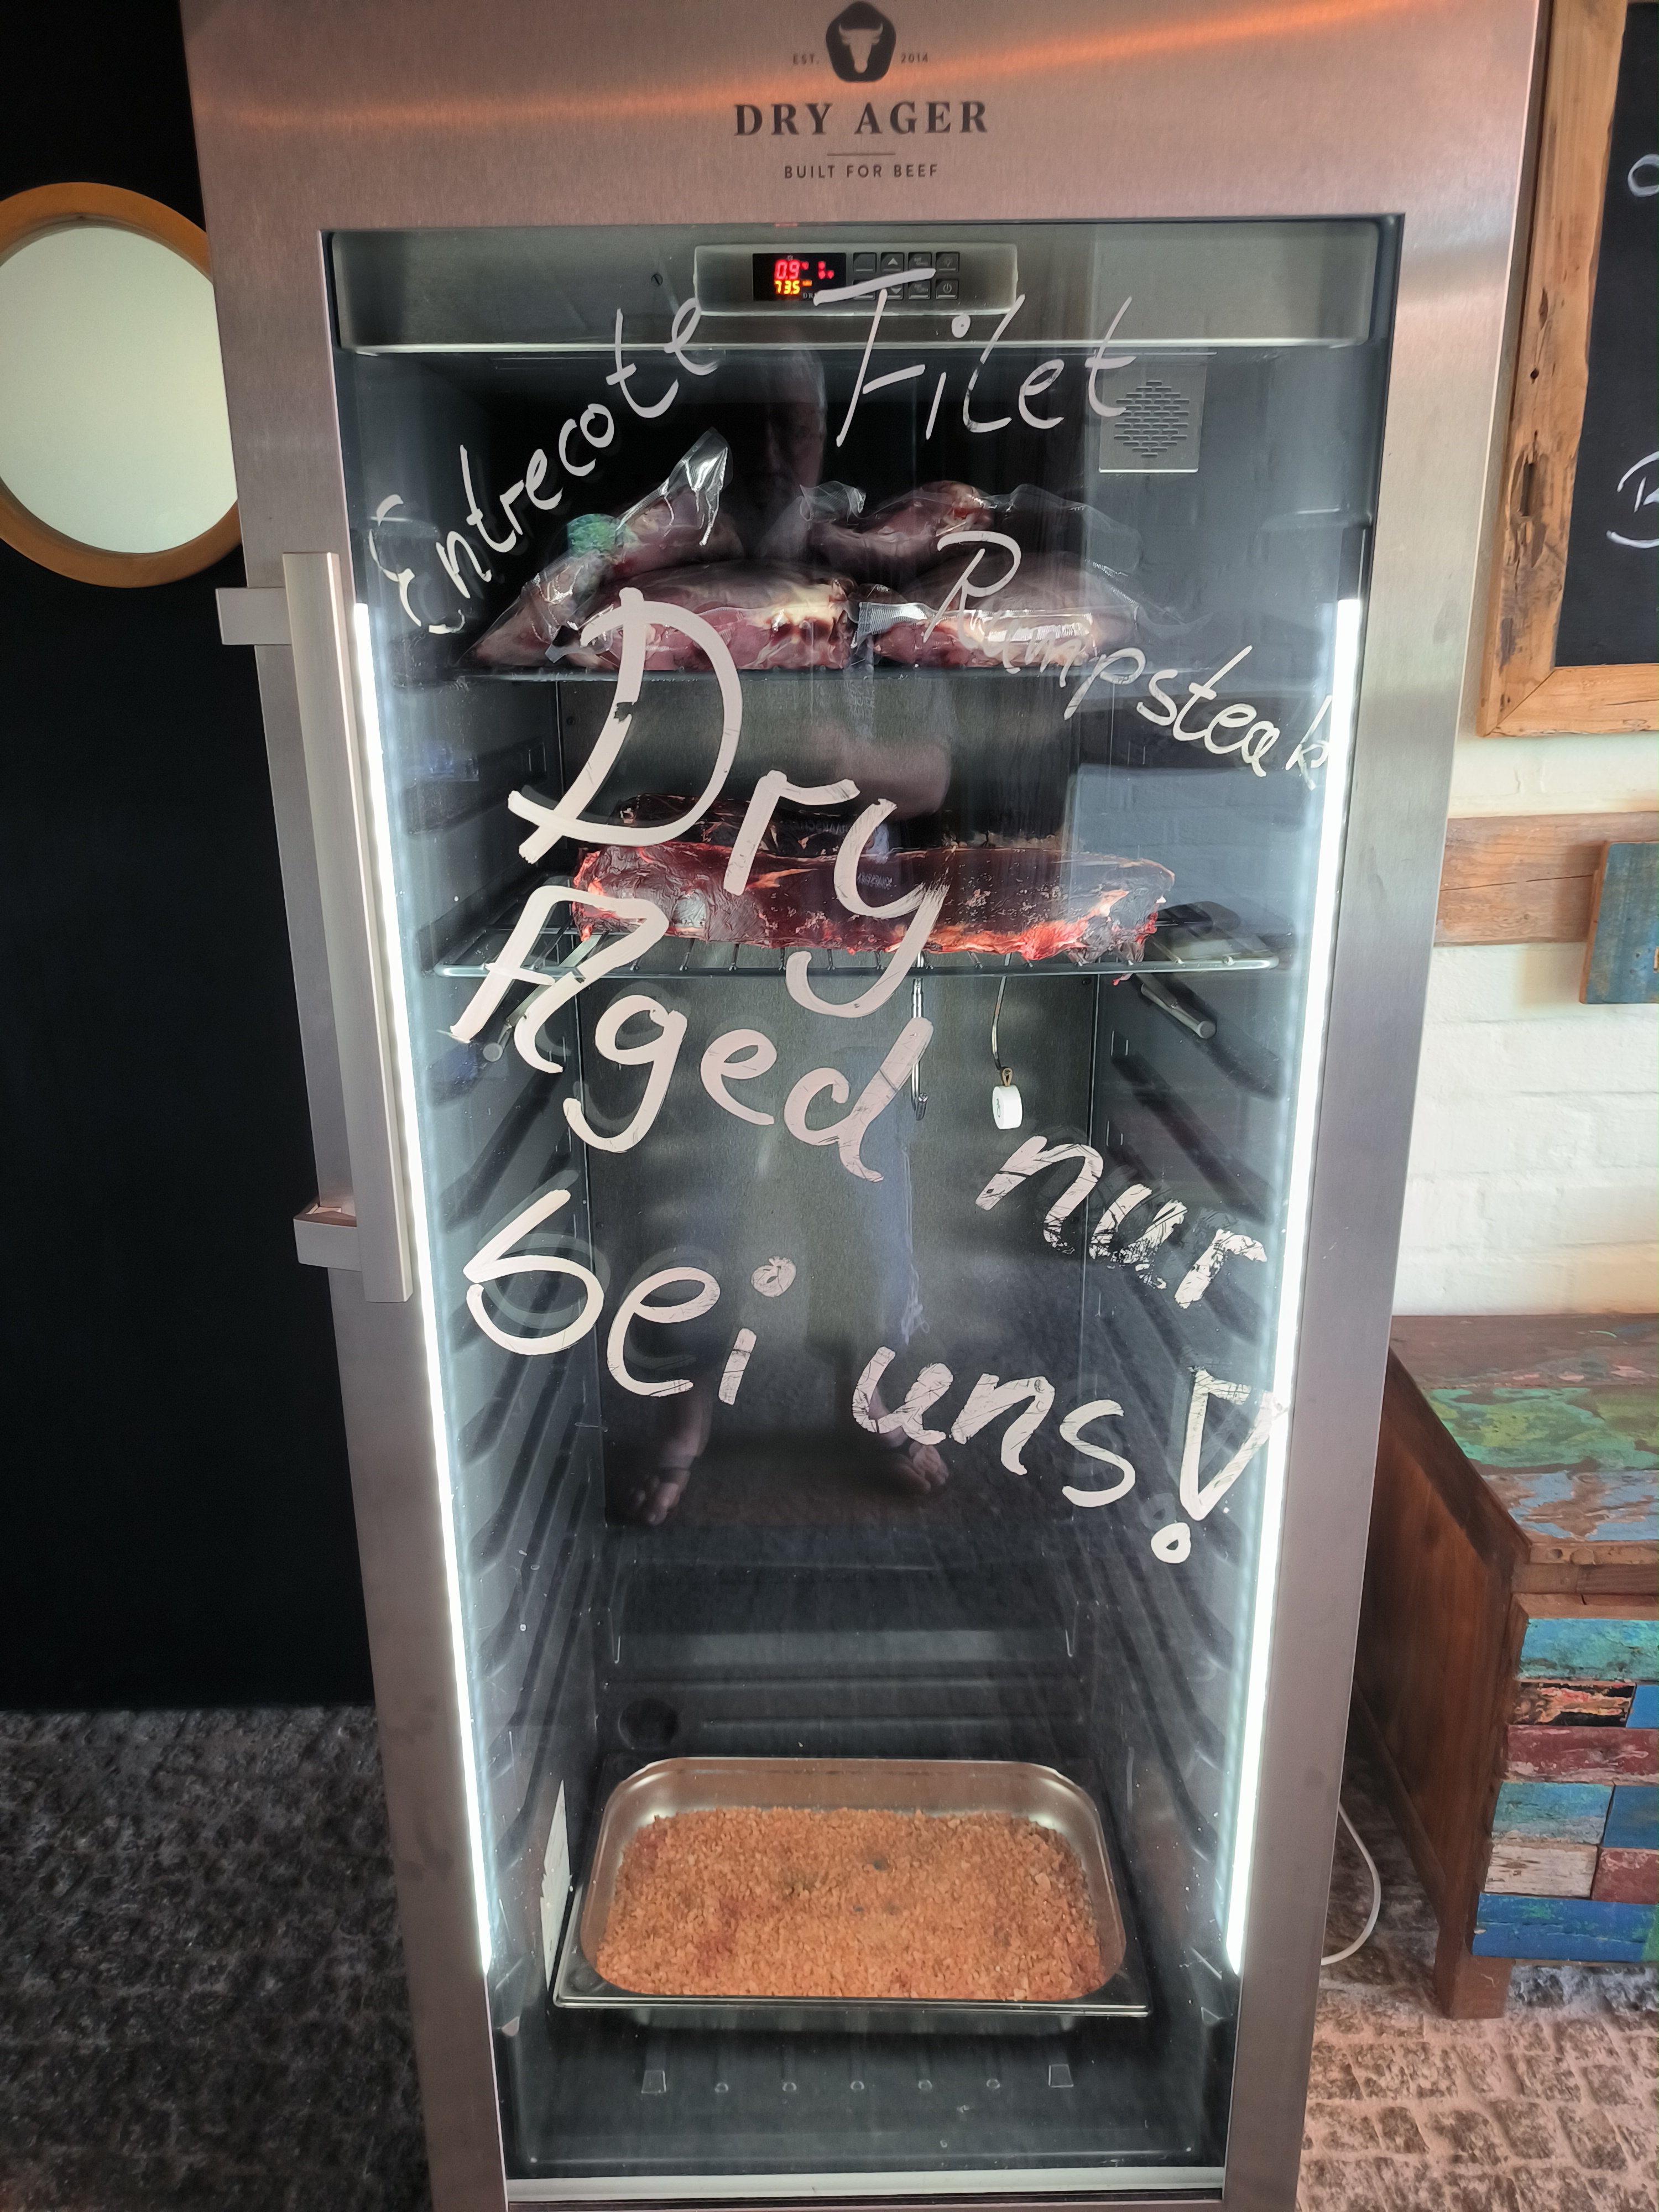 EST. 2014
DRY AGER
BUILT FOR BEEF
0.9
73.5
Entrecote Filet
Rumpsteak
Dry
Aged nur
bei uns!